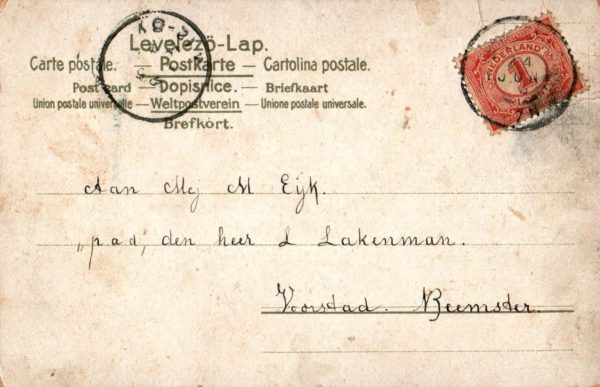 Levelező-Lap.
Carte postale. — Postkarte — Cartolina postale.
Post card — Dopisnice. — Briefkaart
Union postale universelle — Weltpostverein — Unione postale universale.
Brefkort.
NEDERLAND
1
Aan Mej M Eijk.
„pad„ den heer L Lakenman.
Voorstad. Beemster.